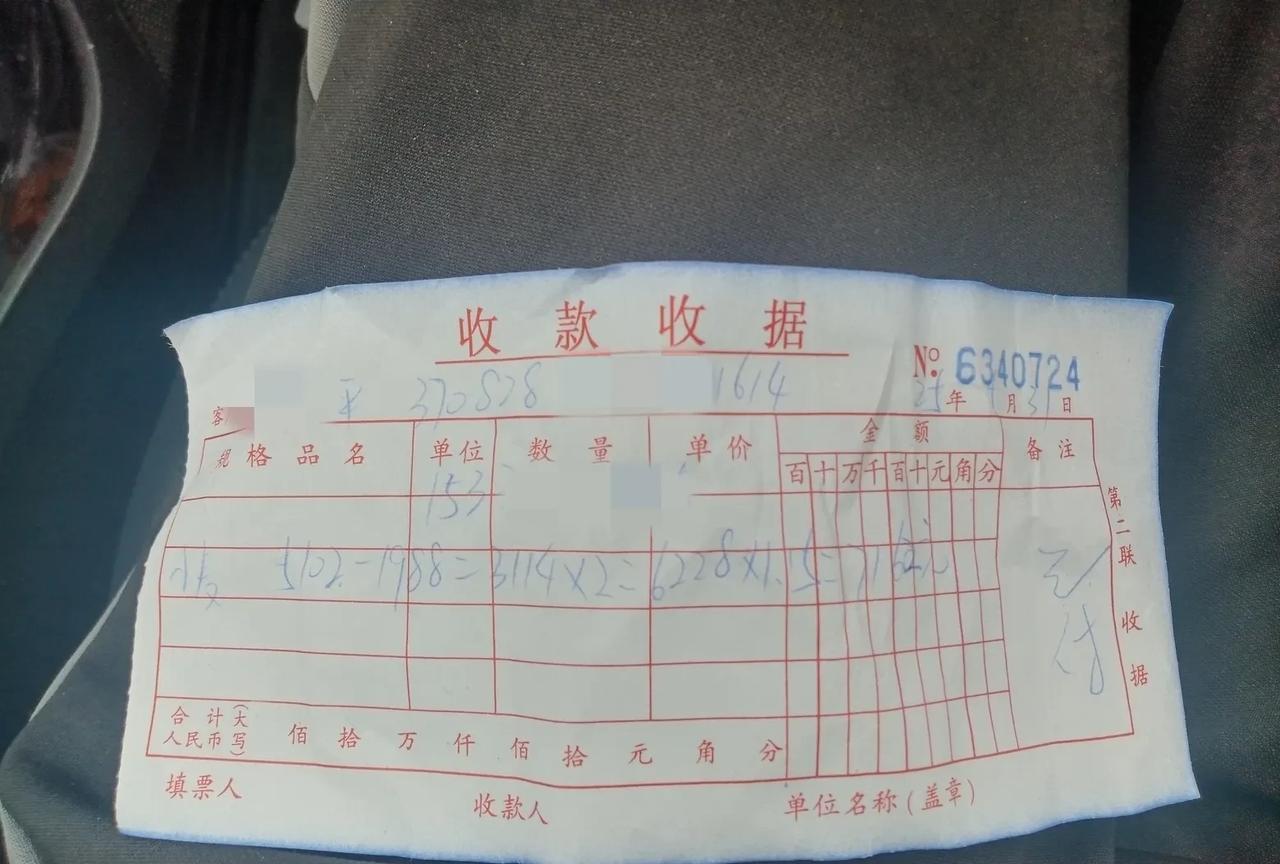 收款收据
No. 6340724
客 平 370828 1614 25年 月31日
规格品名 单位 数量 单价 金额 备注
百十万千百十元角分
153
5102-1988=3114×2=6228×1.15=7162元
已付
合计人民币(大写) 佰 拾 万 仟 佰 拾 元 角 分
第二联 收据
填票人 收款人 单位名称(盖章)